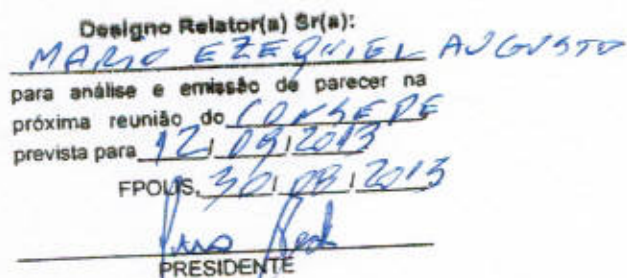 Designo Relator(a) Sr(a):
MARIO EZEQUIEL AUGUSTO
para análise e emissão de parecer na
próxima reunião do CONSEPE
prevista para 12/09/2013
FPOLIS, 30/08/2013
PRESIDENTE